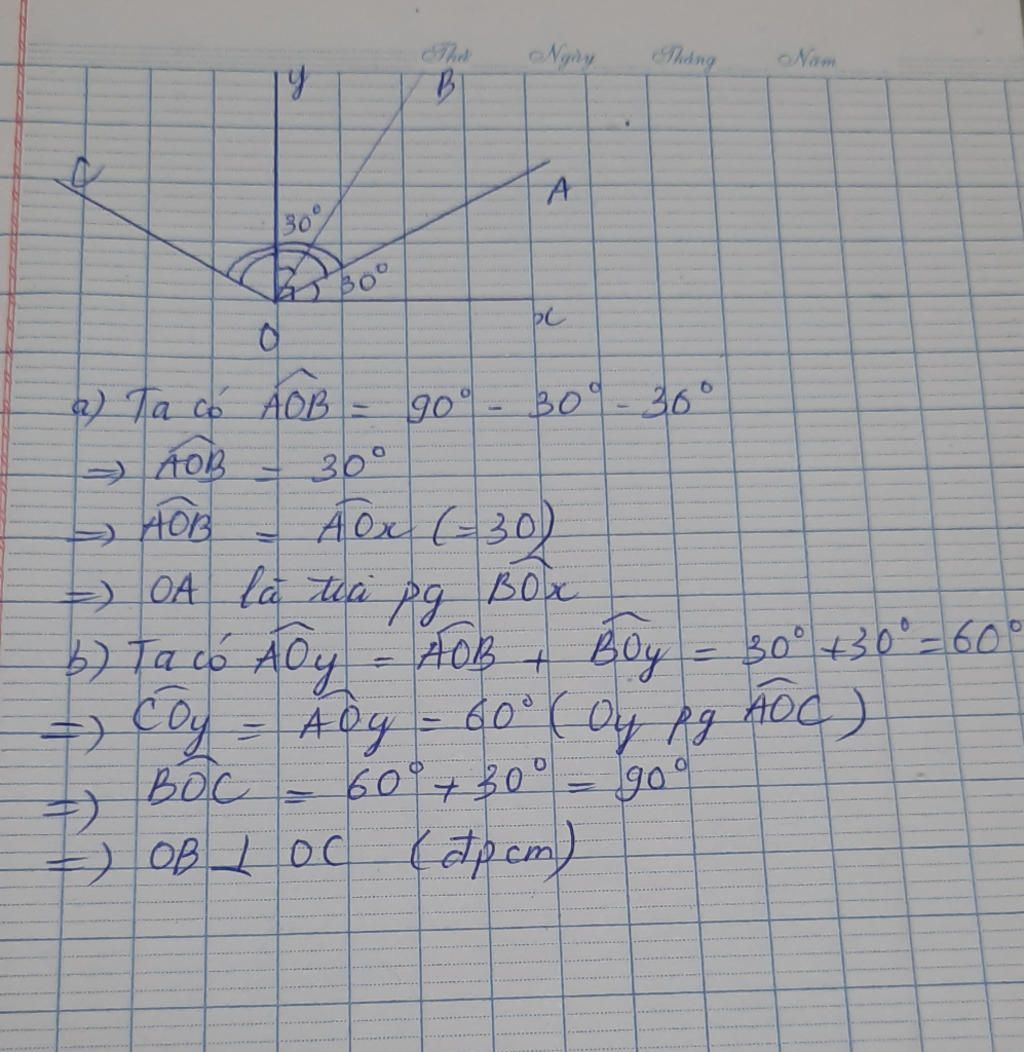 Thứ Ngày Tháng Năm
y B
C
A
30°
30°
x
O
a) Ta có \widehat{AOB} = 90° - 30° - 30°
=> \widehat{AOB} = 30°
=> \widehat{AOB} = \widehat{AOx} (=30)
=> OA là tia pg \widehat{BOx}
b) Ta có \widehat{AOy} = \widehat{AOB} + \widehat{BOy} = 30° + 30° = 60°
=> \widehat{COy} = \widehat{AOy} = 60° (Oy pg \widehat{AOC})
=> \widehat{BOC} = 60° + 30° = 90°
=> OB ⊥ OC (đpcm)